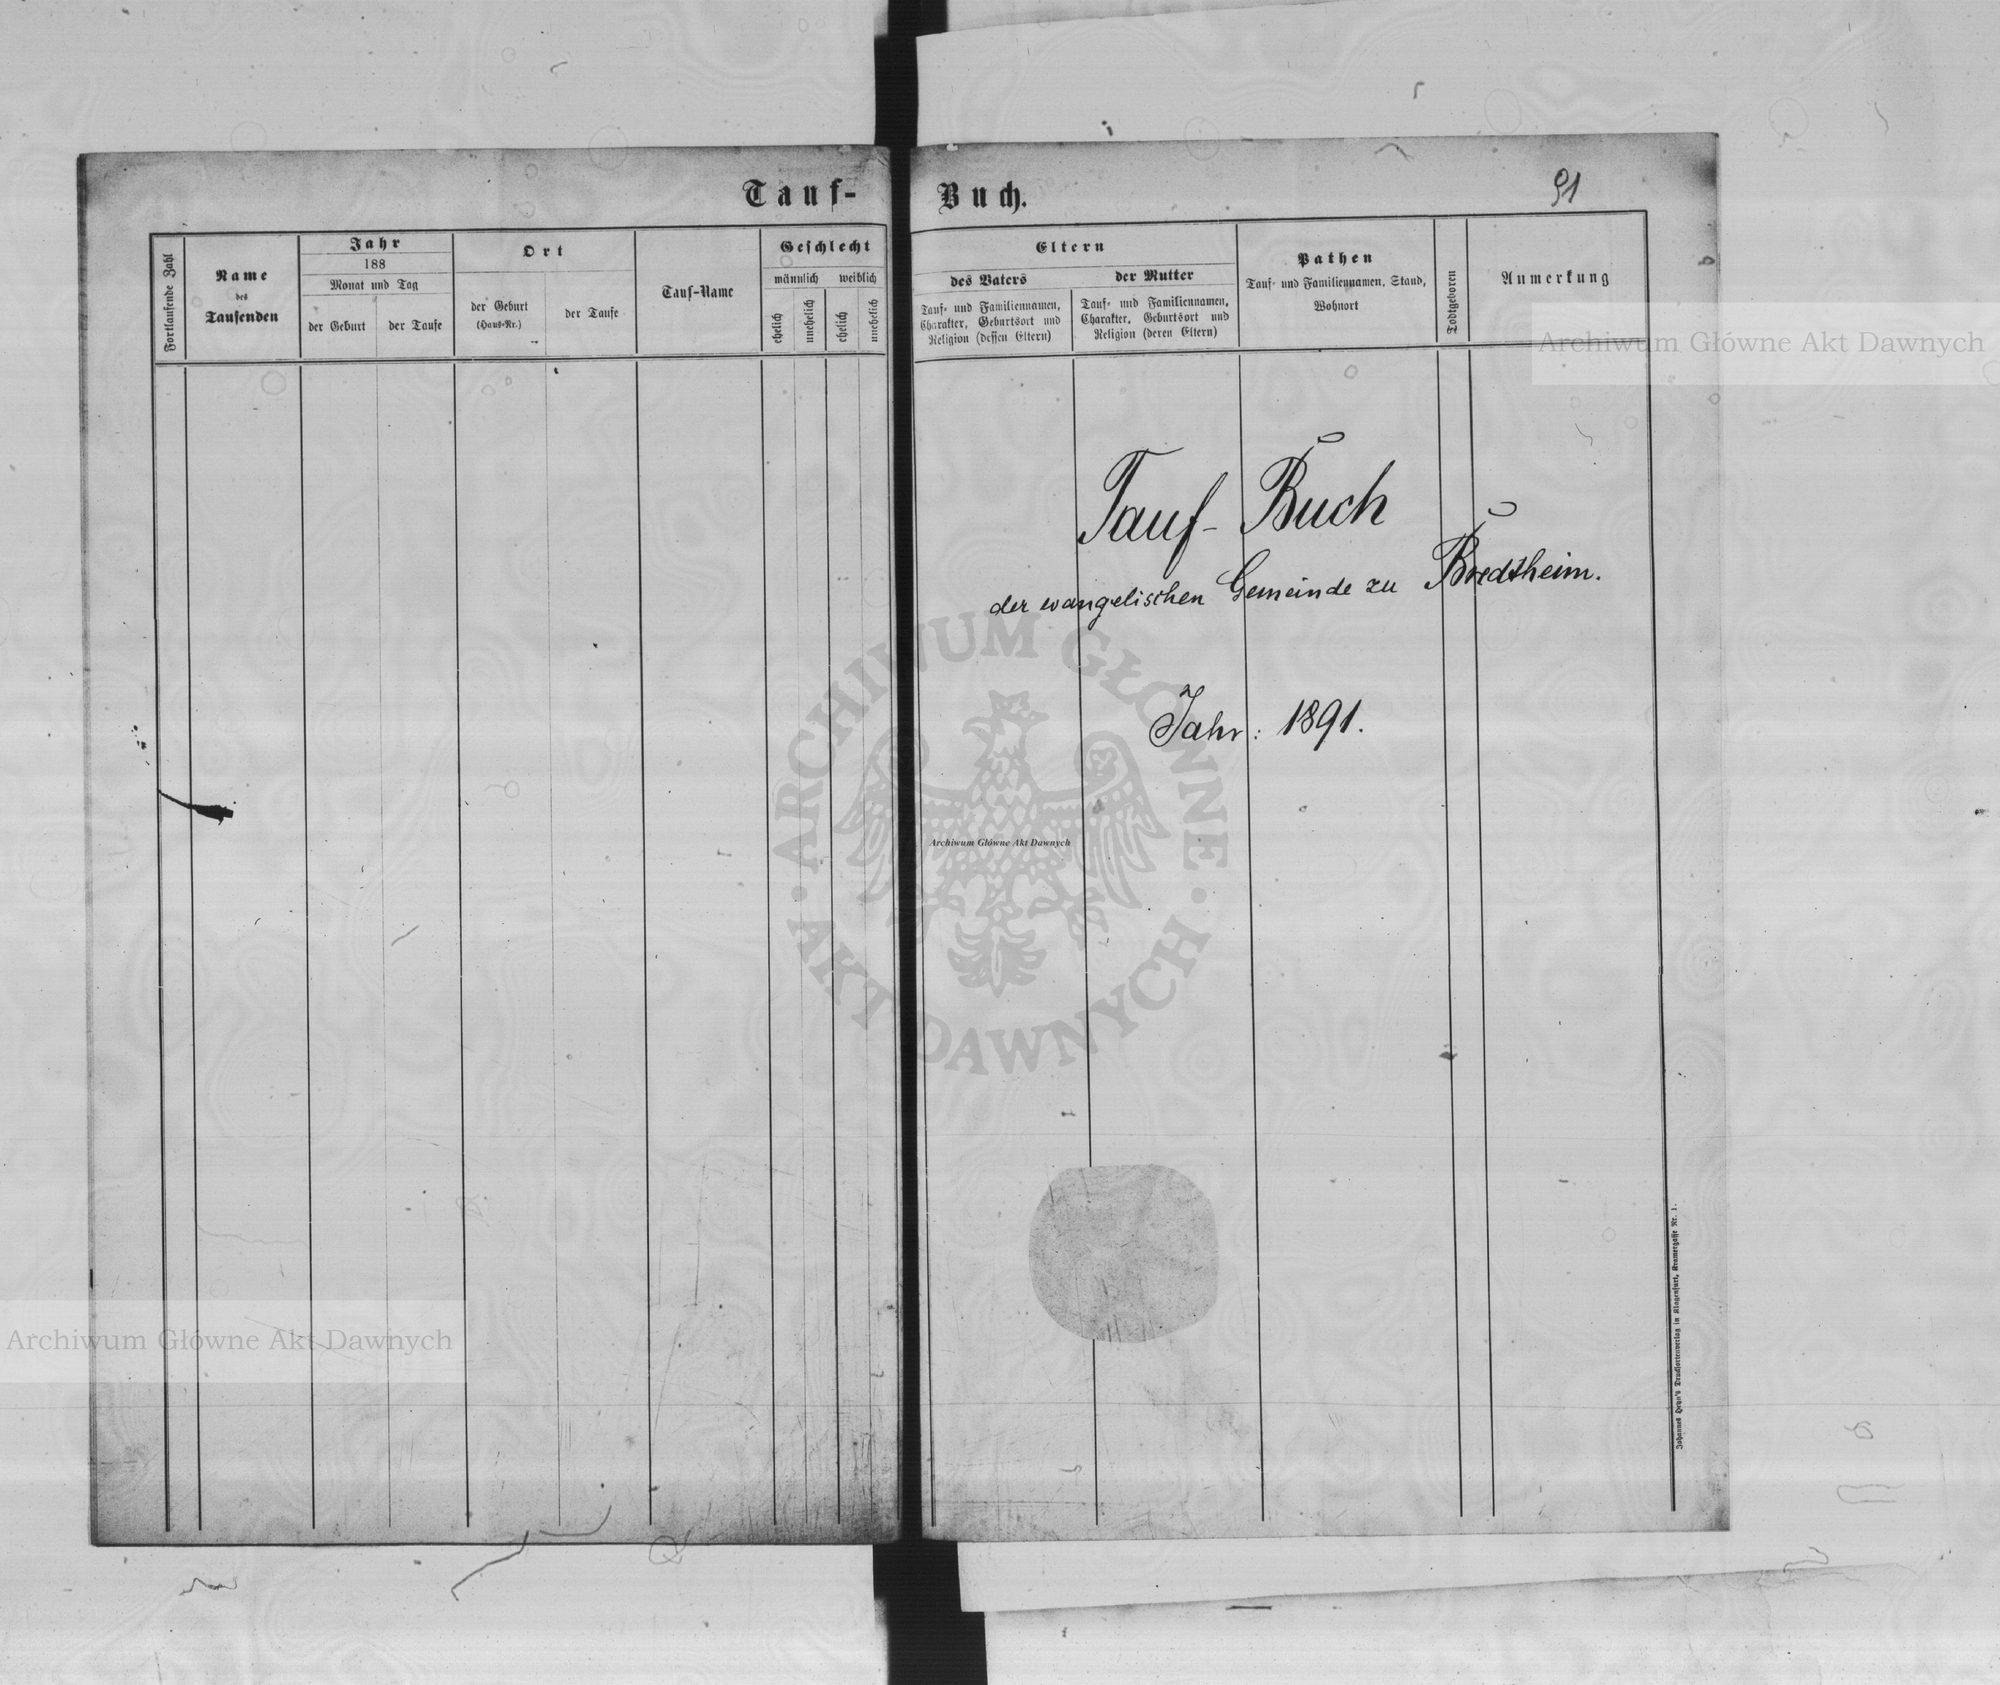 Tauf-
Fortlaufende Zahl
Name
des
Taufenden
Jahr
188
Monat und Tag
der Geburt
der Taufe
Ort
der Geburt
(Haus-Nr.)
der Taufe
Tauf-Name
Geschlecht
männlich weiblich
ehelich
unehelich
ehelich
unehelich
Buch.
91
Eltern
des Vaters
Tauf- und Familiennamen,
Charakter, Geburtsort und
Religion (dessen Eltern)
der Mutter
Tauf- und Familiennamen,
Charakter, Geburtsort und
Religion (deren Eltern)
Pathen
Tauf- und Familiennamen, Stand,
Wohnort
Todtgeboren
Anmerkung
Archiwum Główne Akt Dawnych
Tauf-Buch
der evangelischen Gemeinde zu Bredtheim.
Jahr: 1891.
ARCHIWUM GŁÓWNE
AKT DAWNYCH
Archiwum Główne Akt Dawnych
Archiwum Główne Akt Dawnych
Johannes Heyn's Drucksortenverlag in Klagenfurt, Kramergasse Nr. 1.